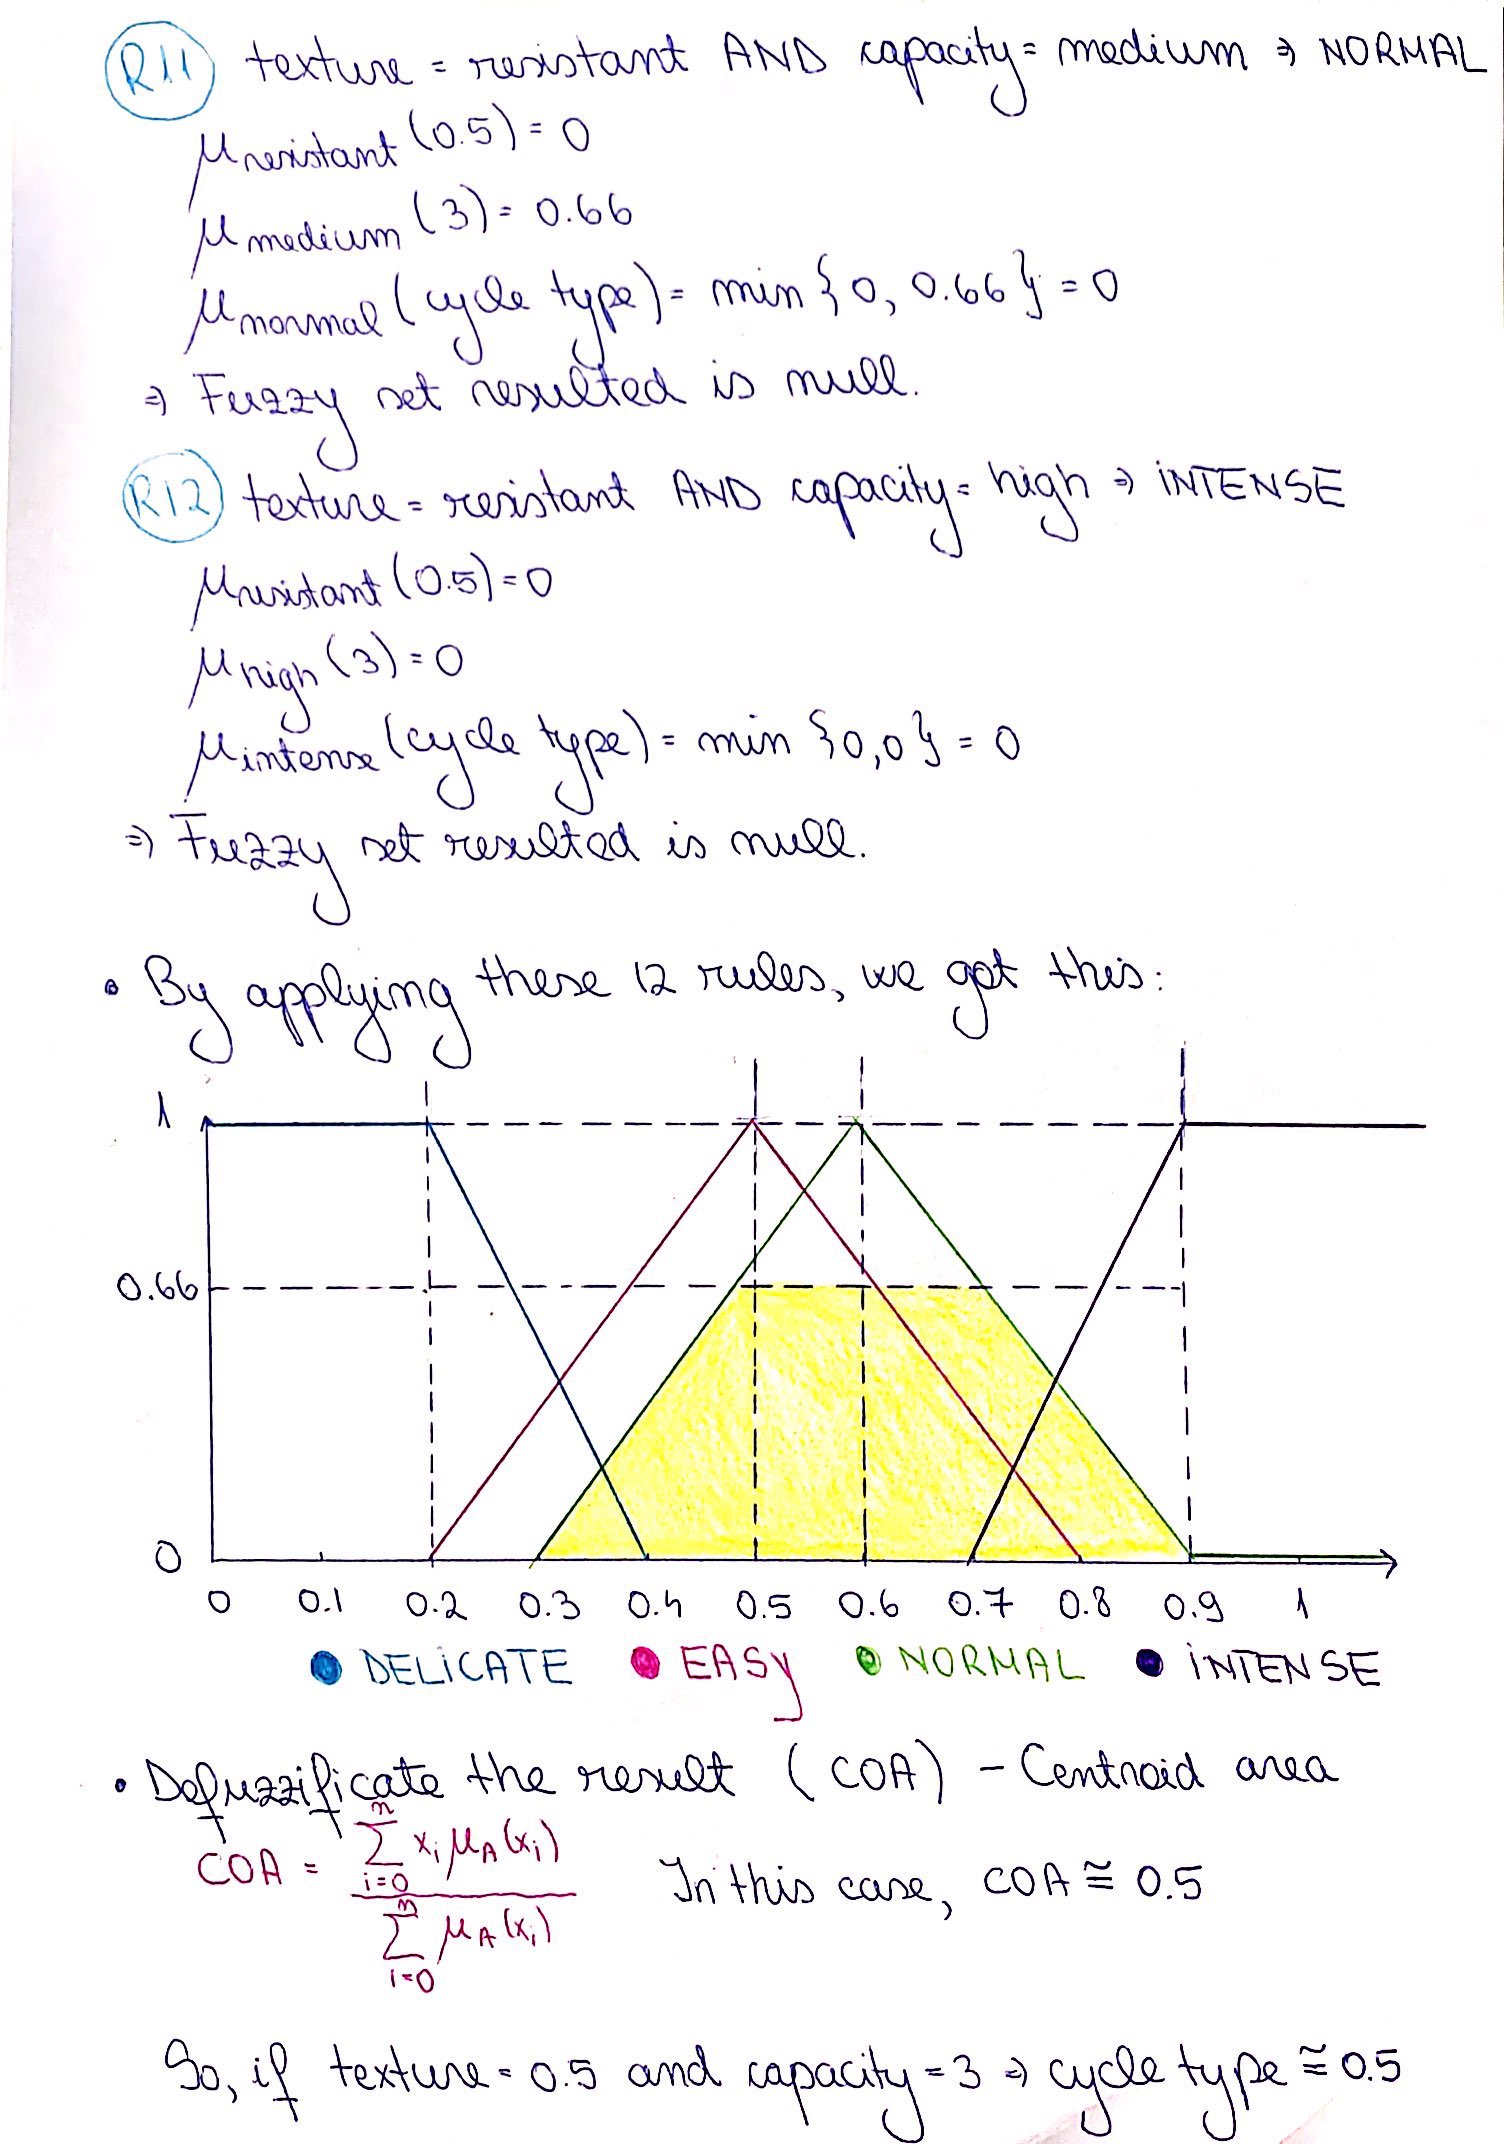 R11 texture = resistant AND capacity = medium ⇒ NORMAL
μresistant (0.5) = 0
μmedium (3) = 0.66
μnormal (cycle type) = min {0, 0.66} = 0
⇒ Fuzzy set resulted is null.
R12 texture = resistant AND capacity = high ⇒ INTENSE
μresistant (0.5) = 0
μhigh (3) = 0
μintense (cycle type) = min {0,0} = 0
⇒ Fuzzy set resulted is null.
• By applying these 12 rules, we got this:
1
0.66
0
0 0.1 0.2 0.3 0.4 0.5 0.6 0.7 0.8 0.9 1
DELICATE EASY NORMAL INTENSE
• Defuzzificate the result (COA) - Centroid area
COA = ∑ⁿᵢ₌₀ xᵢ μA(xᵢ) / ∑ⁿᵢ₌₀ μA(xᵢ) In this case, COA ≅ 0.5
So, if texture = 0.5 and capacity = 3 ⇒ cycle type ≅ 0.5